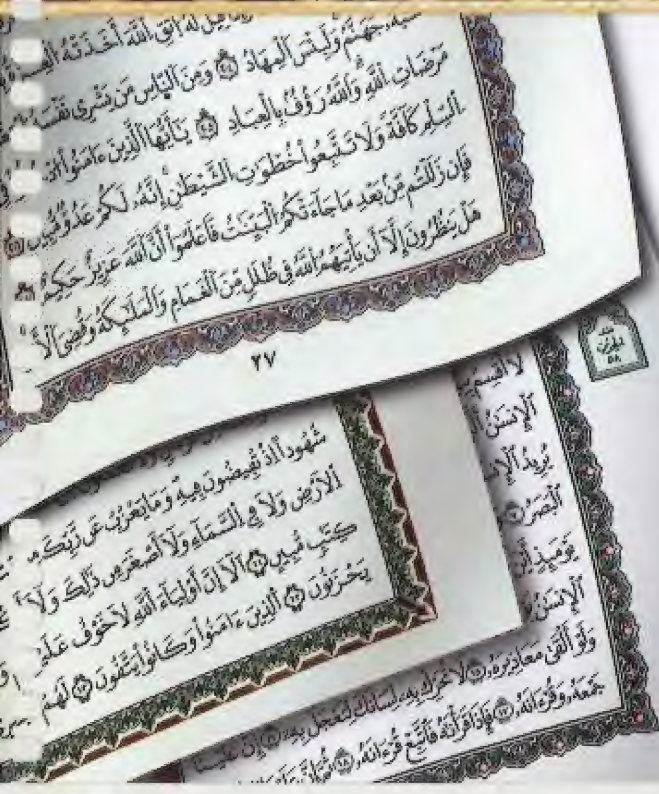 قيل له اتق الله أخذته العزة
جهنم ولبئس المهاد ومن الناس من يشرى نفسه
مرضات الله والله رءوف بالعباد يأيها الذين ءامنوا
السلم كافة ولا تتبعوا خطوت الشيطن إنه لكم عدو مبين
فإن زللتم من بعد ما جاءتكم البينت فاعلموا أن الله عزيز حكيم
هل ينظرون إلا أن يأتيهم الله في ظلل من الغمام والملئكة وقضى
٢٧
شهودا اذ تفيضون فيه وما يعزب عن ربك
الأرض ولا في السماء ولا أصغر من ذلك ولا
كتب مبين ألا إن أولياء الله لا خوف علي
يحزنون الذين ءامنوا وكانوا يتقون لهم
لا أقسم
الإنسن
يريد
البصر
يومئذ أين
الإنسن
ولو ألقى معاذيره لا تحرك به لسانك لتعجل به إن علينا
جمعه وقرءانه فإذا قرأنه فاتبع قرءانه ثم إن